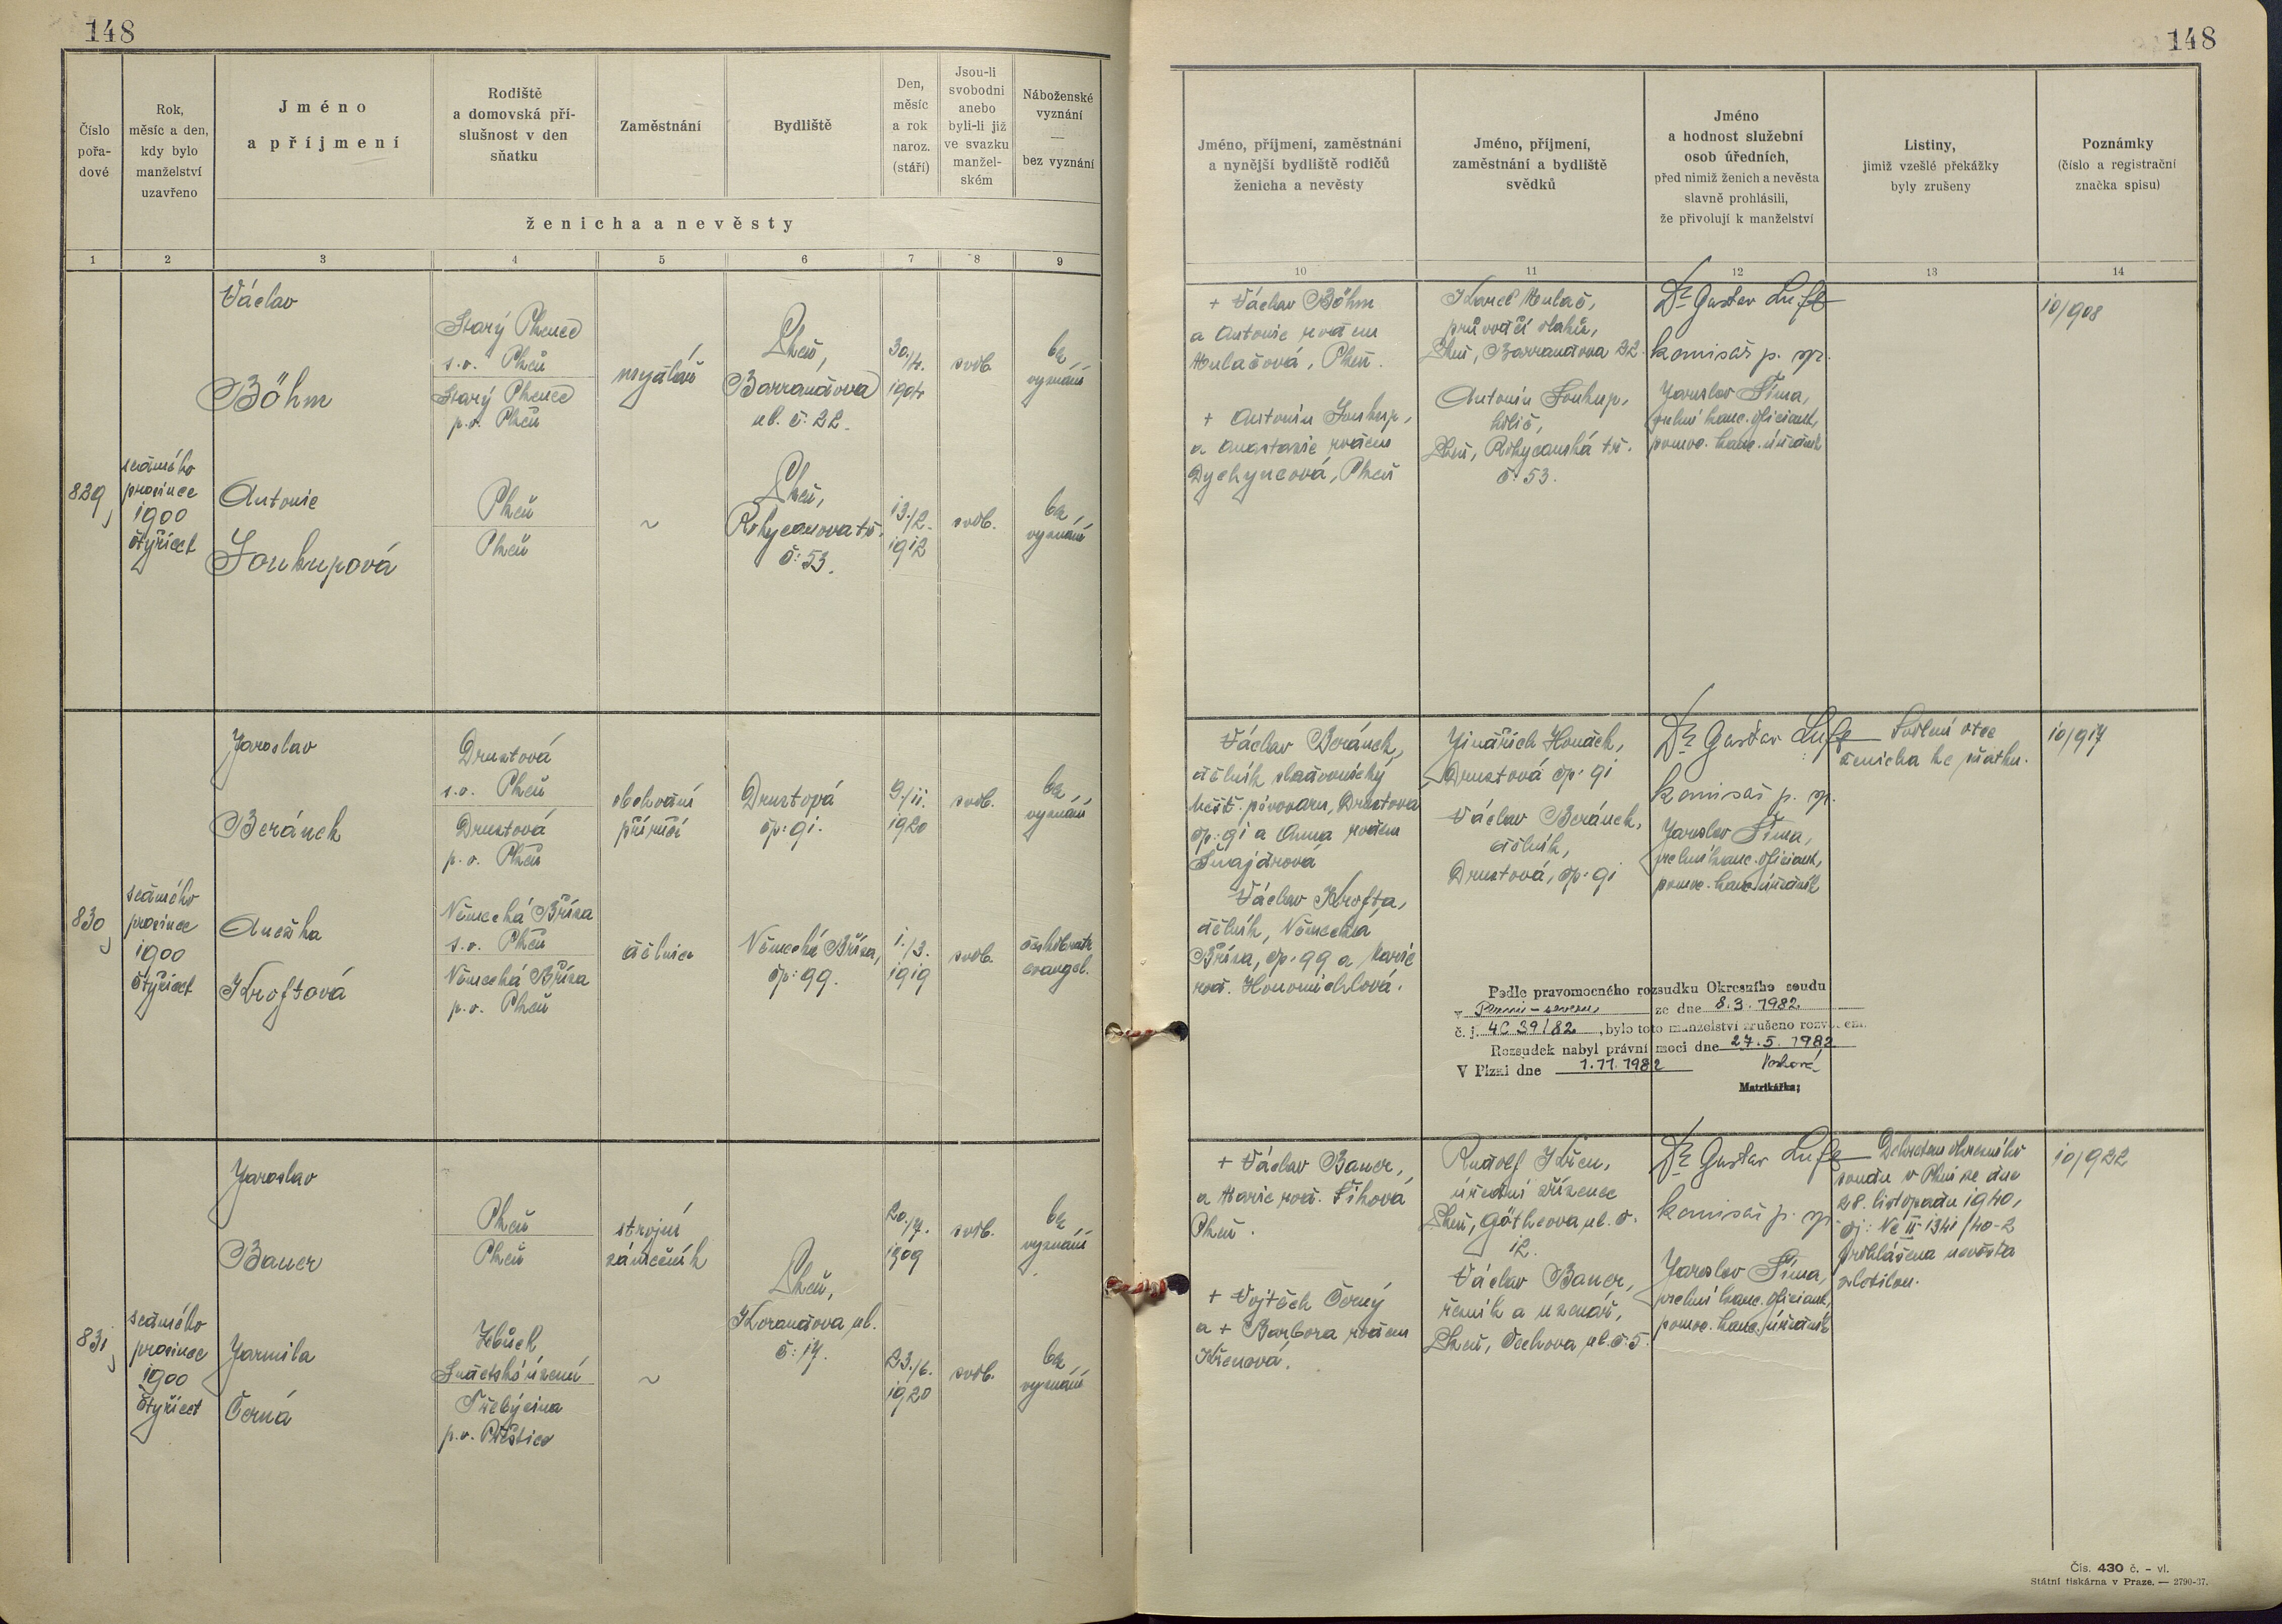 148
148
Číslo
pořa-
dové
Rok,
měsíc a den,
kdy bylo
manželství
uzavřeno
Jméno
a příjmení
Rodiště
a domovská pří-
slušnost v den
sňatku
Zaměstnání
Bydliště
Den,
měsíc
a rok
naroz.
(stáří)
Jsou-li
svobodni
anebo
byli-li již
ve svazku
manžel-
ském
Náboženské
vyznání
—
bez vyznání
ženicha a nevěsty
1 2 3 4 5 6 7 8 9
829
sedmého
prosince
1900
čtyřicet
Václav
Böhm
Starý Plzenec
s.o. Plzeň
Starý Plzenec
p.o. Plzeň
mydlář
Plzeň,
Barrandova
ul. č: 22.
30./4.
1904
svob.
bez
vyznání
Antonie
Soukupová
Plzeň
Plzeň
~
Plzeň,
Rokycanova tř.
č: 53.
13./2.
1912
svob.
bez
vyznání
830
sedmého
prosince
1900
čtyřicet
Jaroslav
Beránek
Druztová
s.o. Plzeň
Druztová
p.o. Plzeň
obchodní
příručí
Druztová
čp: 91.
9./11.
1920
svob.
bez
vyznání
Anežka
Kroftová
Německá Bříza
s.o. Plzeň
Německá Bříza
p.o. Plzeň
dělnice
Německá Bříza,
čp: 99.
1./3.
1919
svob.
českobratr.
evangel.
831
sedmého
prosince
1900
čtyřicet
Jaroslav
Bauer
Plzeň
Plzeň
strojní
zámečník
Plzeň,
Korandova ul.
č: 17.
20./7.
1909
svob.
bez
vyznání
Jarmila
Černá
Zbůch
Sudetské území
Třebýcina
p.o. Přeštice
~
23./6.
1920
svob.
bez
vyznání
Jméno, příjmení, zaměstnání
a nynější bydliště rodičů
ženicha a nevěsty
Jméno, příjmení,
zaměstnání a bydliště
svědků
Jméno
a hodnost služební
osob úředních,
před nimiž ženich a nevěsta
slavně prohlásili,
že přivolují k manželství
Listiny,
jimiž vzešlé překážky
byly zrušeny
Poznámky
(číslo a registrační
značka spisu)
10 11 12 13 14
+ Václav Böhm
a Antonie rodem
Mulačová, Plzeň.
+ Antonín Soukup,
a Anastazie rodem
Dychyncová, Plzeň
Karel Mulač,
průvodčí vlaků,
Plzeň, Barrandova 22.
Antonín Soukup,
holič,
Plzeň, Rokycanská tř.
č: 53.
Dr Gustav Luft
komisař p. sp.
Jaroslav Šíma,
smluvní kanc. oficiant,
pomoc. kanc. úředník
10/908
Václav Beránek,
dělník sladovnický
Měšť. pivovaru, Druztová
čp: 91 a Anna rodem
Šnajdrová
Václav Krofta,
dělník, Německá
Bříza, čp: 99 a Marie
rod. Honomichlová.
Jindřich Horáček,
Druztová čp: 91
Václav Beránek,
dělník,
Druztová, čp: 91
Dr Gustav Luft
komisař p. sp.
Jaroslav Šíma,
smluvní kanc. oficiant,
pomoc. kanc. úředník
Svolení otce
ženicha ke sňatku.
10/917
Podle pravomocného rozsudku Okresního soudu
v Plzni-severu, ze dne 8.3.1982
č. j. 4C 39/82, bylo toto manželství zrušeno rozvodem.
Rozsudek nabyl právní moci dne 27.5.1982
V Plzni dne 1.11.1982
Matrikářka:
+ Václav Bauer,
a Marie rod. Šihová
Plzeň.
+ Vojtěch Černý
a + Barbora rodem
Křenová.
Rudolf Křen,
úřední zřízenec
Plzeň, Götheova ul. č.
12.
Václav Bauer,
řezník a uzenář,
Plzeň, Čechova ul. č: 5.
Dr Gustav Luft
komisař p. sp.
Jaroslav Šíma,
smluvní kanc. oficiant,
pomoc. kanc. úředník
Dekretem okresního
soudu v Plzni ze dne
28. listopadu 1940,
čj: Nc II 1341/40-2
prohlášena nevěsta
zletilou.
10/922
Čís. 430 č. - vl.
Státní tiskárna v Praze. — 2790-37.